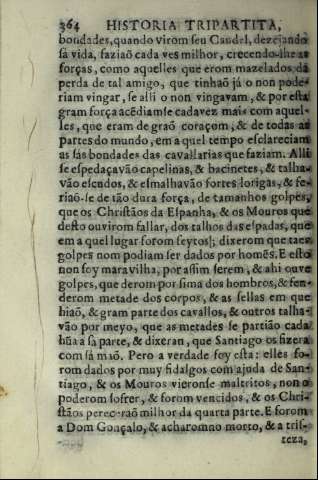 364 HISTORIA TRIPARTITA,
bondades, quando virom seu Caudel, dezejando
sà vida, faziaõ cada ves milhor, crecendo-lhe as
forças, como aquelles que erom mazelados da
perda de tal amigo, que tinhaõ já o non pode-
riam vingar, se alli o non vingavam, & por esta
gram força acèdiamse cadavez mais com aquel-
les, que eram de graõ coraçom, & de todas as
partes do mundo, em a quel tempo esclareciam
as sás bondades das cavallarias que faziam. Alli
se espedaçavão capelinas, & bacinetes, & talha-
vão escudos, & esmalhavão fortes lorigas, & fe-
riaõ-se de tão dura força, de tamanhos golpes,
que os Christãos da Espanha, & os Mouros que
desto ouvirom fallar, dos talhos das espadas, que
em a quel lugar forom feytos, dixerom que taes
golpes nom podiam ser dados por homẽs. E esto
non foy maravilha, por assim serem, & ahi ouve
golpes, que derom por sima dos hombros, & fen-
derom metade dos corpos, & as sellas em que
hiaõ, & gram parte dos cavallos, & outros talha-
vão por meyo, que as metades se partião cada
hũa a sa parte, & dizeran, que Santiago os fizera
com sá maõ. Pero a verdade foy esta: elles fo-
rom dados por muy fidalgos com ajuda de San-
tiago, & os Mouros vieronse maltritos, non o
poderom sofrer, & forom vencidos, & os Chri-
stãos pereceraõ milhor da quarta parte. E forom
a Dom Gonçalo, & acharomno morto, & a tris-
teza,